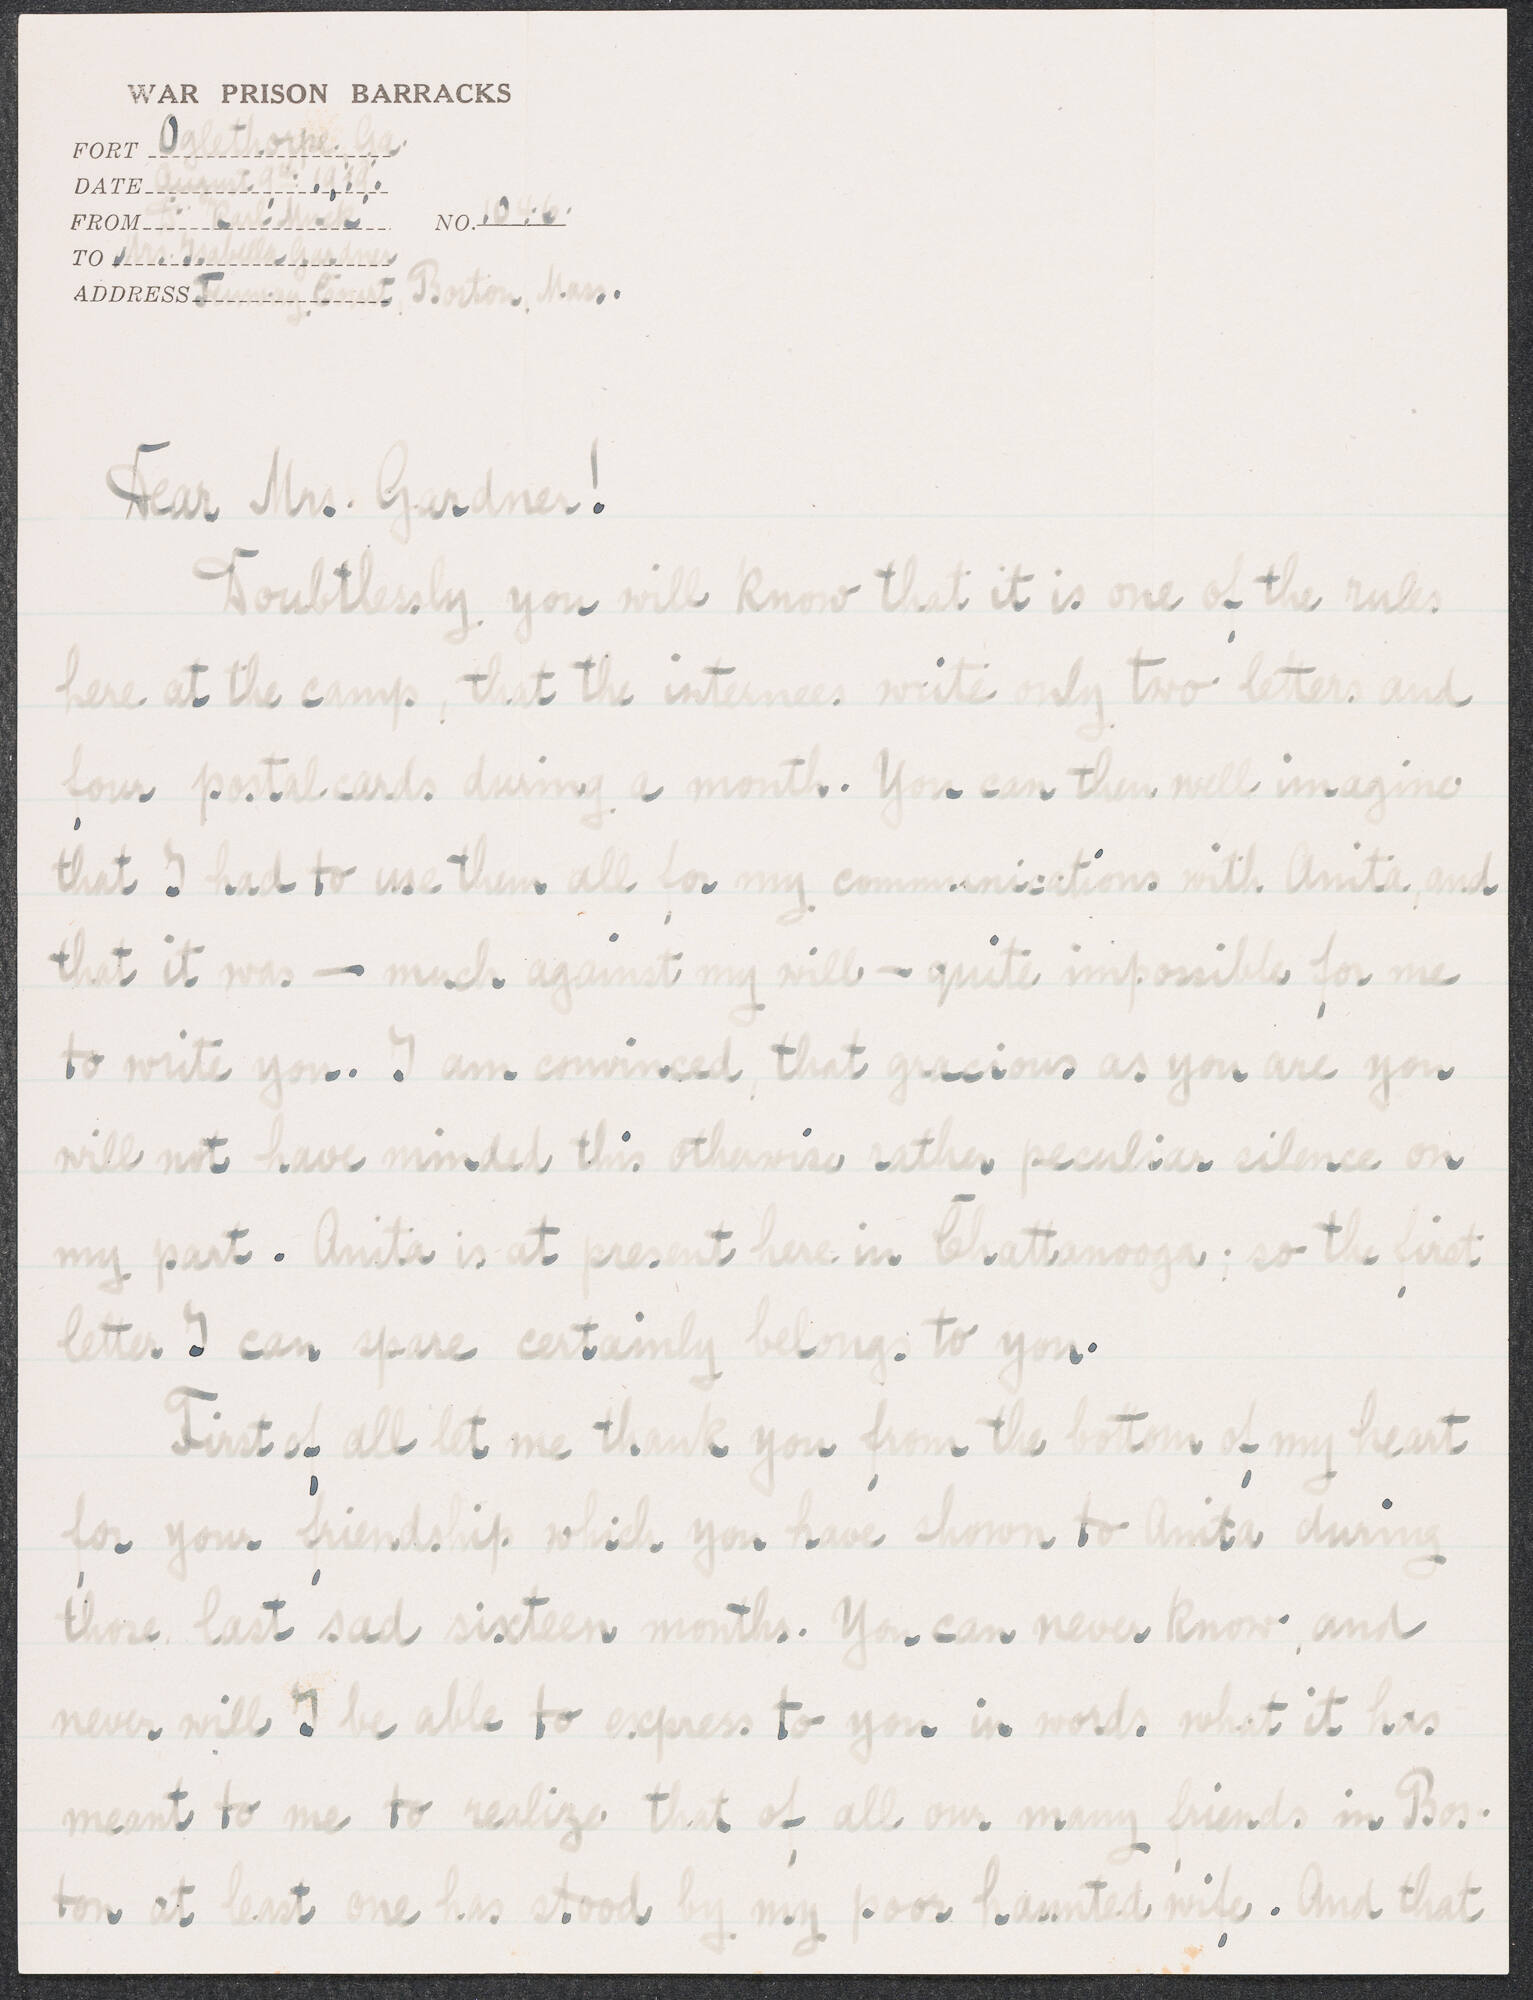 WAR PRISON BARRACKS
FORT Oglethorpe, Ga.
DATE August 9th 1919.
FROM Dr. Karl Muck, NO. 1046.
TO Mrs. Isabella Gardner
ADDRESS Fenway Court, Boston, Mass.
Dear Mrs. Gardner!
Doubtlessly you will know that it is one of the rules
here at the camp, that the internees write only two letters and
four postalcards during a month. You can then well imagine
that I had to use them all for my communications with Anita, and
that it was — much against my will — quite impossible for me
to write you. I am convinced, that gracious as you are you
will not have minded this otherwise rather peculiar silence on
my part. Anita is at present here in Chattanooga; so the first
letter I can spare certainly belongs to you.
First of all let me thank you from the bottom of my heart
for your friendship which you have shown to Anita during
those last sad sixteen months. You can never know, and
never will I be able to express to you in words what it has
meant to me to realize that of all our many friends in Bos-
ton at least one has stood by my poor haunted wife. And that